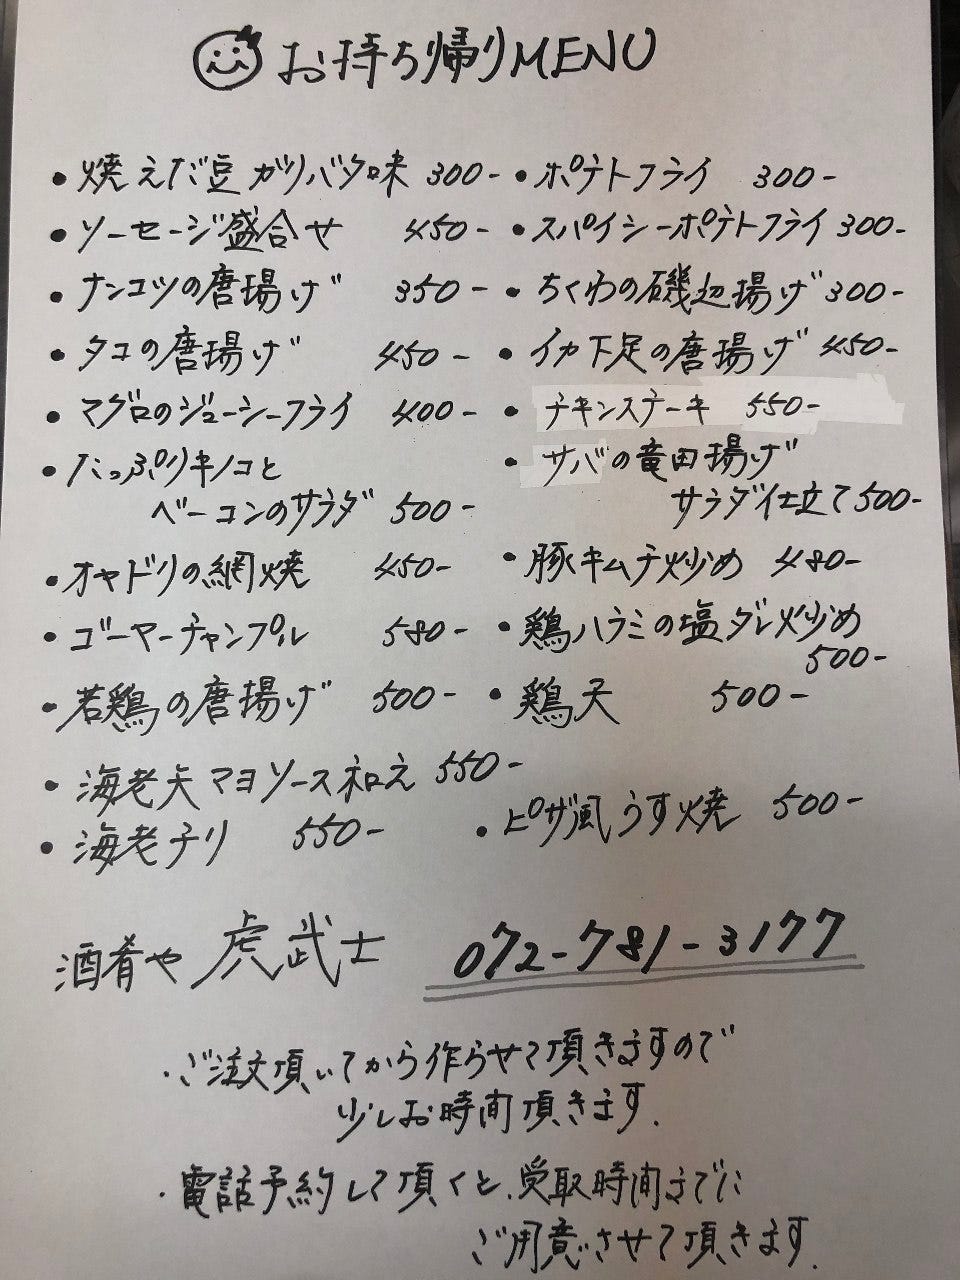 お持ち帰りMENU
・焼えだ豆ガリバタ味 300-
・ソーセージ盛合せ 450-
・ナンコツの唐揚げ 350-
・タコの唐揚げ 450-
・マグロのジューシーフライ 400-
・たっぷりキノコと
ベーコンのサラダ 500-
・オヤドリの網焼 450-
・ゴーヤーチャンプル 580-
・若鶏の唐揚げ 500-
・海老天マヨソース和え 550-
・海老チリ 550-
・ポテトフライ 300-
・スパイシーポテトフライ 300-
・ちくわの磯辺揚げ 300-
・イカ下足の唐揚げ 450-
・チキンステーキ 550-
・サバの竜田揚げ
サラダ仕立て 500-
・豚キムチ炒め 480-
・鶏ハラミの塩ダレ炒め
500-
・鶏天 500-
・ピザ風うす焼 500-
酒肴や 虎武士 072-781-3177
・ご注文頂いてから作らせて頂きますので
少しお時間頂きます.
・電話予約して頂くと、受取時間までに
ご用意させて頂きます.